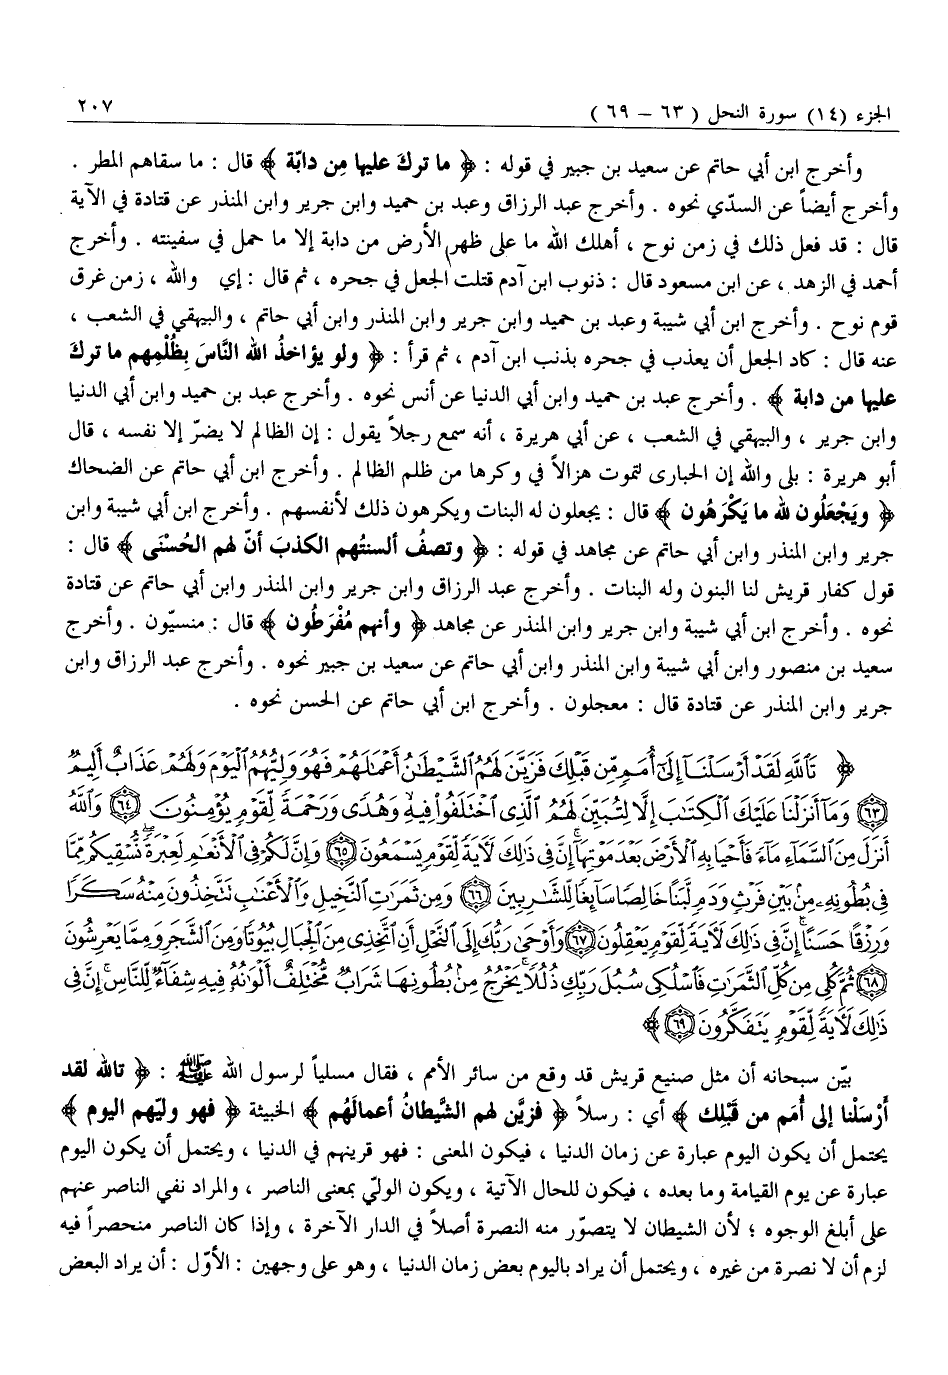 الجزء (١٤) سورة النحل ( ٦٣ – ٦٩ ) ٢٠٧
وأخرج ابن أبي حاتم عن سعيد بن جبير في قوله : ﴿ ما تركَ عليها مِن دابّة ﴾ قال : ما سقاهم المطر .
وأخرج أيضاً عن السدّي نحوه . وأخرج عبد الرزاق وعبد بن حميد وابن جرير وابن المنذر عن قتادة في الآية
قال : قد فعل ذلك في زمن نوح ، أهلك الله ما على ظهر الأرض من دابة إلا ما حمل في سفينته . وأخرج
أحمد في الزهد ، عن ابن مسعود قال : ذنوب ابن آدم قتلت الجعل في جحره ، ثم قال : إي والله ، زمن غرق
قوم نوح . وأخرج ابن أبي شيبة وعبد بن حميد وابن جرير وابن المنذر وابن أبي حاتم ، والبيهقي في الشعب ،
عنه قال : كاد الجعل أن يعذب في جحره بذنب ابن آدم ، ثم قرأ : ﴿ ولو يؤاخذُ الله النَّاسَ بِظُلْمِهم ما تركَ
عليها من دابة ﴾ . وأخرج عبد بن حميد وابن أبي الدنيا عن أنس نحوه . وأخرج عبد بن حميد وابن أبي الدنيا
وابن جرير ، والبيهقي في الشعب ، عن أبي هريرة ، أنه سمع رجلاً يقول : إن الظالم لا يضرّ إلا نفسه ، قال
أبو هريرة : بلى والله إن الحبارى لتموت هزالاً في وكرها من ظلم الظالم . وأخرج ابن أبي حاتم عن الضحاك
﴿ ويَجْعَلُون لله ما يَكْرَهُون ﴾ قال : يجعلون له البنات ويكرهون ذلك لأنفسهم . وأخرج ابن أبي شيبة وابن
جرير وابن المنذر وابن أبي حاتم عن مجاهد في قوله : ﴿ وتصفُ ألسنتُهم الكذبَ أنّ لهم الحُسْنَى ﴾ قال :
قول كفار قريش لنا البنون وله البنات . وأخرج عبد الرزاق وابن جرير وابن المنذر وابن أبي حاتم عن قتادة
نحوه . وأخرج ابن أبي شيبة وابن جرير وابن المنذر عن مجاهد ﴿ وأنهم مُفْرَطُون ﴾ قال : منسيّون . وأخرج
سعيد بن منصور وابن أبي شيبة وابن المنذر وابن أبي حاتم عن سعيد بن جبير نحوه . وأخرج عبد الرزاق وابن
جرير وابن المنذر عن قتادة قال : معجلون . وأخرج ابن أبي حاتم عن الحسن نحوه .
﴿ تَٱللَّهِ لَقَدْ أَرْسَلْنَآ إِلَىٰٓ أُمَمٍ مِّن قَبْلِكَ فَزَيَّنَ لَهُمُ ٱلشَّيْطَٰنُ أَعْمَٰلَهُمْ فَهُوَ وَلِيُّهُمُ ٱلْيَوْمَ وَلَهُمْ عَذَابٌ أَلِيمٌ
(٦٣) وَمَآ أَنزَلْنَا عَلَيْكَ ٱلْكِتَٰبَ إِلَّا لِتُبَيِّنَ لَهُمُ ٱلَّذِى ٱخْتَلَفُوا۟ فِيهِ وَهُدًى وَرَحْمَةً لِّقَوْمٍ يُؤْمِنُونَ (٦٤) وَٱللَّهُ
أَنزَلَ مِنَ ٱلسَّمَآءِ مَآءً فَأَحْيَا بِهِ ٱلْأَرْضَ بَعْدَ مَوْتِهَآ إِنَّ فِى ذَٰلِكَ لَءَايَةً لِّقَوْمٍ يَسْمَعُونَ (٦٥) وَإِنَّ لَكُمْ فِى ٱلْأَنْعَٰمِ لَعِبْرَةً نُّسْقِيكُم مِّمَّا
فِى بُطُونِهِۦ مِنۢ بَيْنِ فَرْثٍ وَدَمٍ لَّبَنًا خَالِصًا سَآئِغًا لِّلشَّٰرِبِينَ (٦٦) وَمِن ثَمَرَٰتِ ٱلنَّخِيلِ وَٱلْأَعْنَٰبِ تَتَّخِذُونَ مِنْهُ سَكَرًا
وَرِزْقًا حَسَنًا إِنَّ فِى ذَٰلِكَ لَءَايَةً لِّقَوْمٍ يَعْقِلُونَ (٦٧) وَأَوْحَىٰ رَبُّكَ إِلَى ٱلنَّحْلِ أَنِ ٱتَّخِذِى مِنَ ٱلْجِبَالِ بُيُوتًا وَمِنَ ٱلشَّجَرِ وَمِمَّا يَعْرِشُونَ
(٦٨) ثُمَّ كُلِى مِن كُلِّ ٱلثَّمَرَٰتِ فَٱسْلُكِى سُبُلَ رَبِّكِ ذُلُلًا يَخْرُجُ مِنۢ بُطُونِهَا شَرَابٌ مُّخْتَلِفٌ أَلْوَٰنُهُۥ فِيهِ شِفَآءٌ لِّلنَّاسِ إِنَّ فِى
ذَٰلِكَ لَءَايَةً لِّقَوْمٍ يَتَفَكَّرُونَ (٦٩) ﴾
بيّن سبحانه أن مثل صنيع قريش قد وقع من سائر الأمم ، فقال مسلياً لرسول الله ﷺ : ﴿ تالله لقد
أرْسَلْنا إلى أُمَم من قَبْلِك ﴾ أي : رسلاً ﴿ فزيَّن لهم الشَّيطانُ أعمالَهُم ﴾ الخبيثة ﴿ فهو وليّهم اليوم ﴾
يحتمل أن يكون اليوم عبارة عن زمان الدنيا ، فيكون المعنى : فهو قرينهم في الدنيا ، ويحتمل أن يكون اليوم
عبارة عن يوم القيامة وما بعده ، فيكون للحال الآتية ، ويكون الوليّ بمعنى الناصر ، والمراد نفي الناصر عنهم
على أبلغ الوجوه ؛ لأن الشيطان لا يتصوّر منه النصرة أصلاً في الدار الآخرة ، وإذا كان الناصر منحصراً فيه
لزم أن لا نصرة من غيره ، ويحتمل أن يراد باليوم بعض زمان الدنيا ، وهو على وجهين : الأوّل : أن يراد البعض